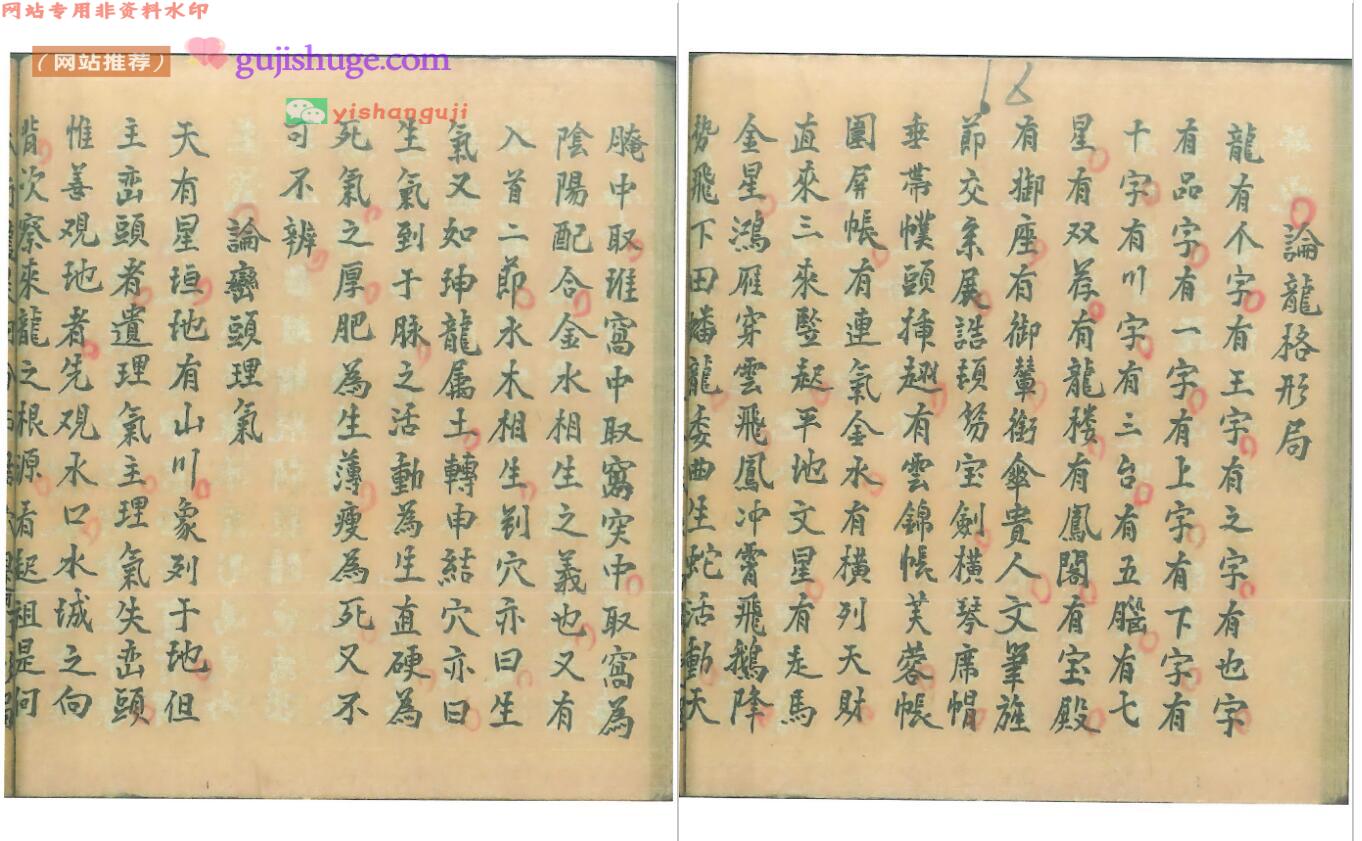 网站专用非资料水印
（网站推荐）
gujishuge.com
yishanguji
18
論龍格形局
龍有个字有王字有之字有也字
有品字有一字有上字有下字有
十字有川字有三台有五腦有七
星有双荐有龍楼有鳳閣有宝殿
有御座有御輦衛傘貴人文筆旌
節交系展誥頚努宝劍横琴席帽
垂帶幞頭挿趐有雲錦帳芙蓉帳
圍屏帳有連氣金水有横列天財
直來三來竪起平地文星有走馬
金星鴻雁穿雲飛鳳冲霄飛鵝降
勢飛下田蟠龍委曲生蛇活動天
腌中取堆窩中取窩突中取窩為
陰陽配合金水相生之義也又有
入首二節水木相生到穴亦曰生
氣又如珅龍属土轉申結穴亦曰
生氣到于脉之活動為生直硬為
死氣之厚肥為生薄瘦為死又不
可不辨
論巒頭理氣
天有星垣地有山川象列于地但
主峦頭者遺理氣主理氣失峦頭
惟善观地者先观水口水城之向
背次察來龍之根源看起祖是何